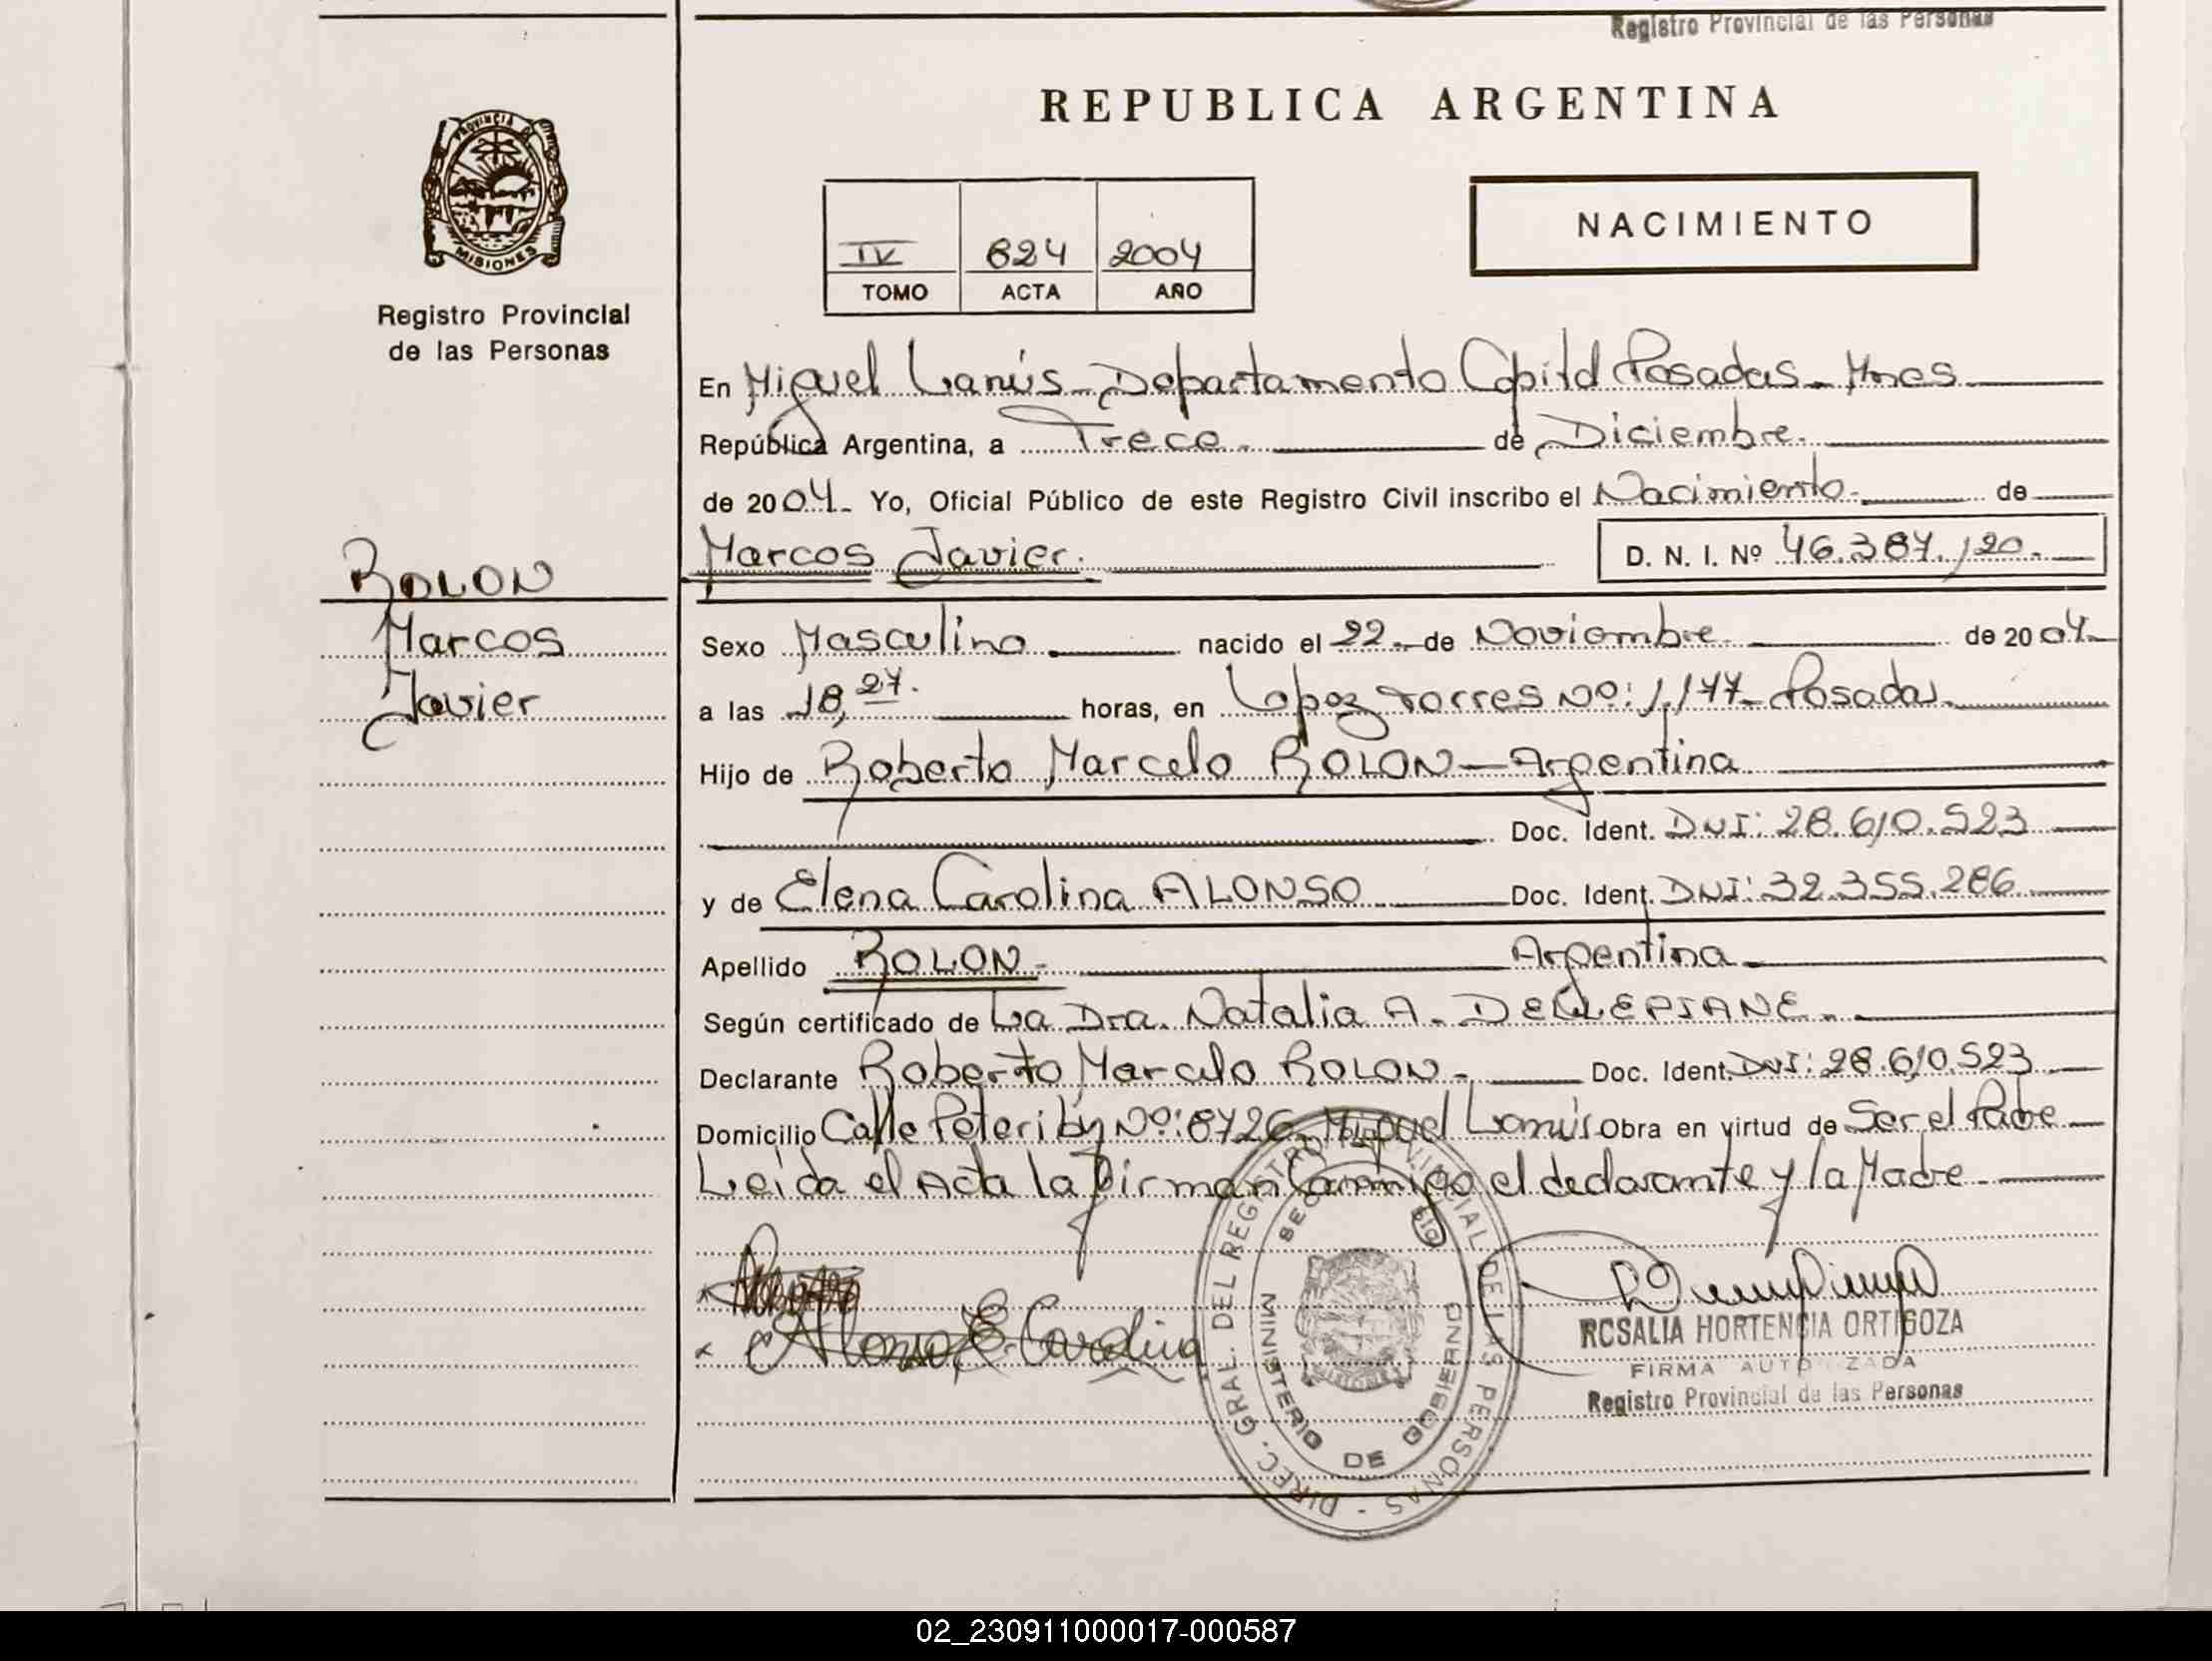 Registro Provincial de las Personas
REPUBLICA ARGENTINA
PROVINCIA DE
MISIONES
Registro Provincial
de las Personas
IV 624 2004
TOMO ACTA AÑO
NACIMIENTO
En Miguel Lanús - Departamento Capital Posadas - Mnes
República Argentina, a Trece de Diciembre
de 2004 Yo, Oficial Público de este Registro Civil inscribo el Nacimiento de
Marcos Javier. D. N. I. Nº 46.387.120.
ROLON
Marcos
Javier
Sexo Masculino nacido el 22 de Noviembre de 2004
a las 18,27. horas, en Lopez Torres Nº: 1,177 - Posadas.
Hijo de Roberto Marcelo ROLON - Argentina
Doc. Ident. DNI: 28.610.523
y de Elena Carolina ALONSO Doc. Ident. DNI: 32.355.286
Apellido ROLON - Argentina
Según certificado de La Dra. Natalia A. DELLEPIANE.
Declarante Roberto Marcelo ROLON - Doc. Ident. DNI: 28.610.523
Domicilio Calle Peteriby Nº: 8726 Miguel Lanús Obra en virtud de Ser el Padre
Leida el Acta la firman Conmigo el declarante y la Madre
Alonso E. Carolina
DIREC. GRAL. DEL REGISTRO PROVINCIAL DE LAS PERSONAS -
MINISTERIO DE GOBIERNO
ROSALIA HORTENCIA ORTIGOZA
FIRMA AUTORIZADA
Registro Provincial de las Personas
02_230911000017-000587